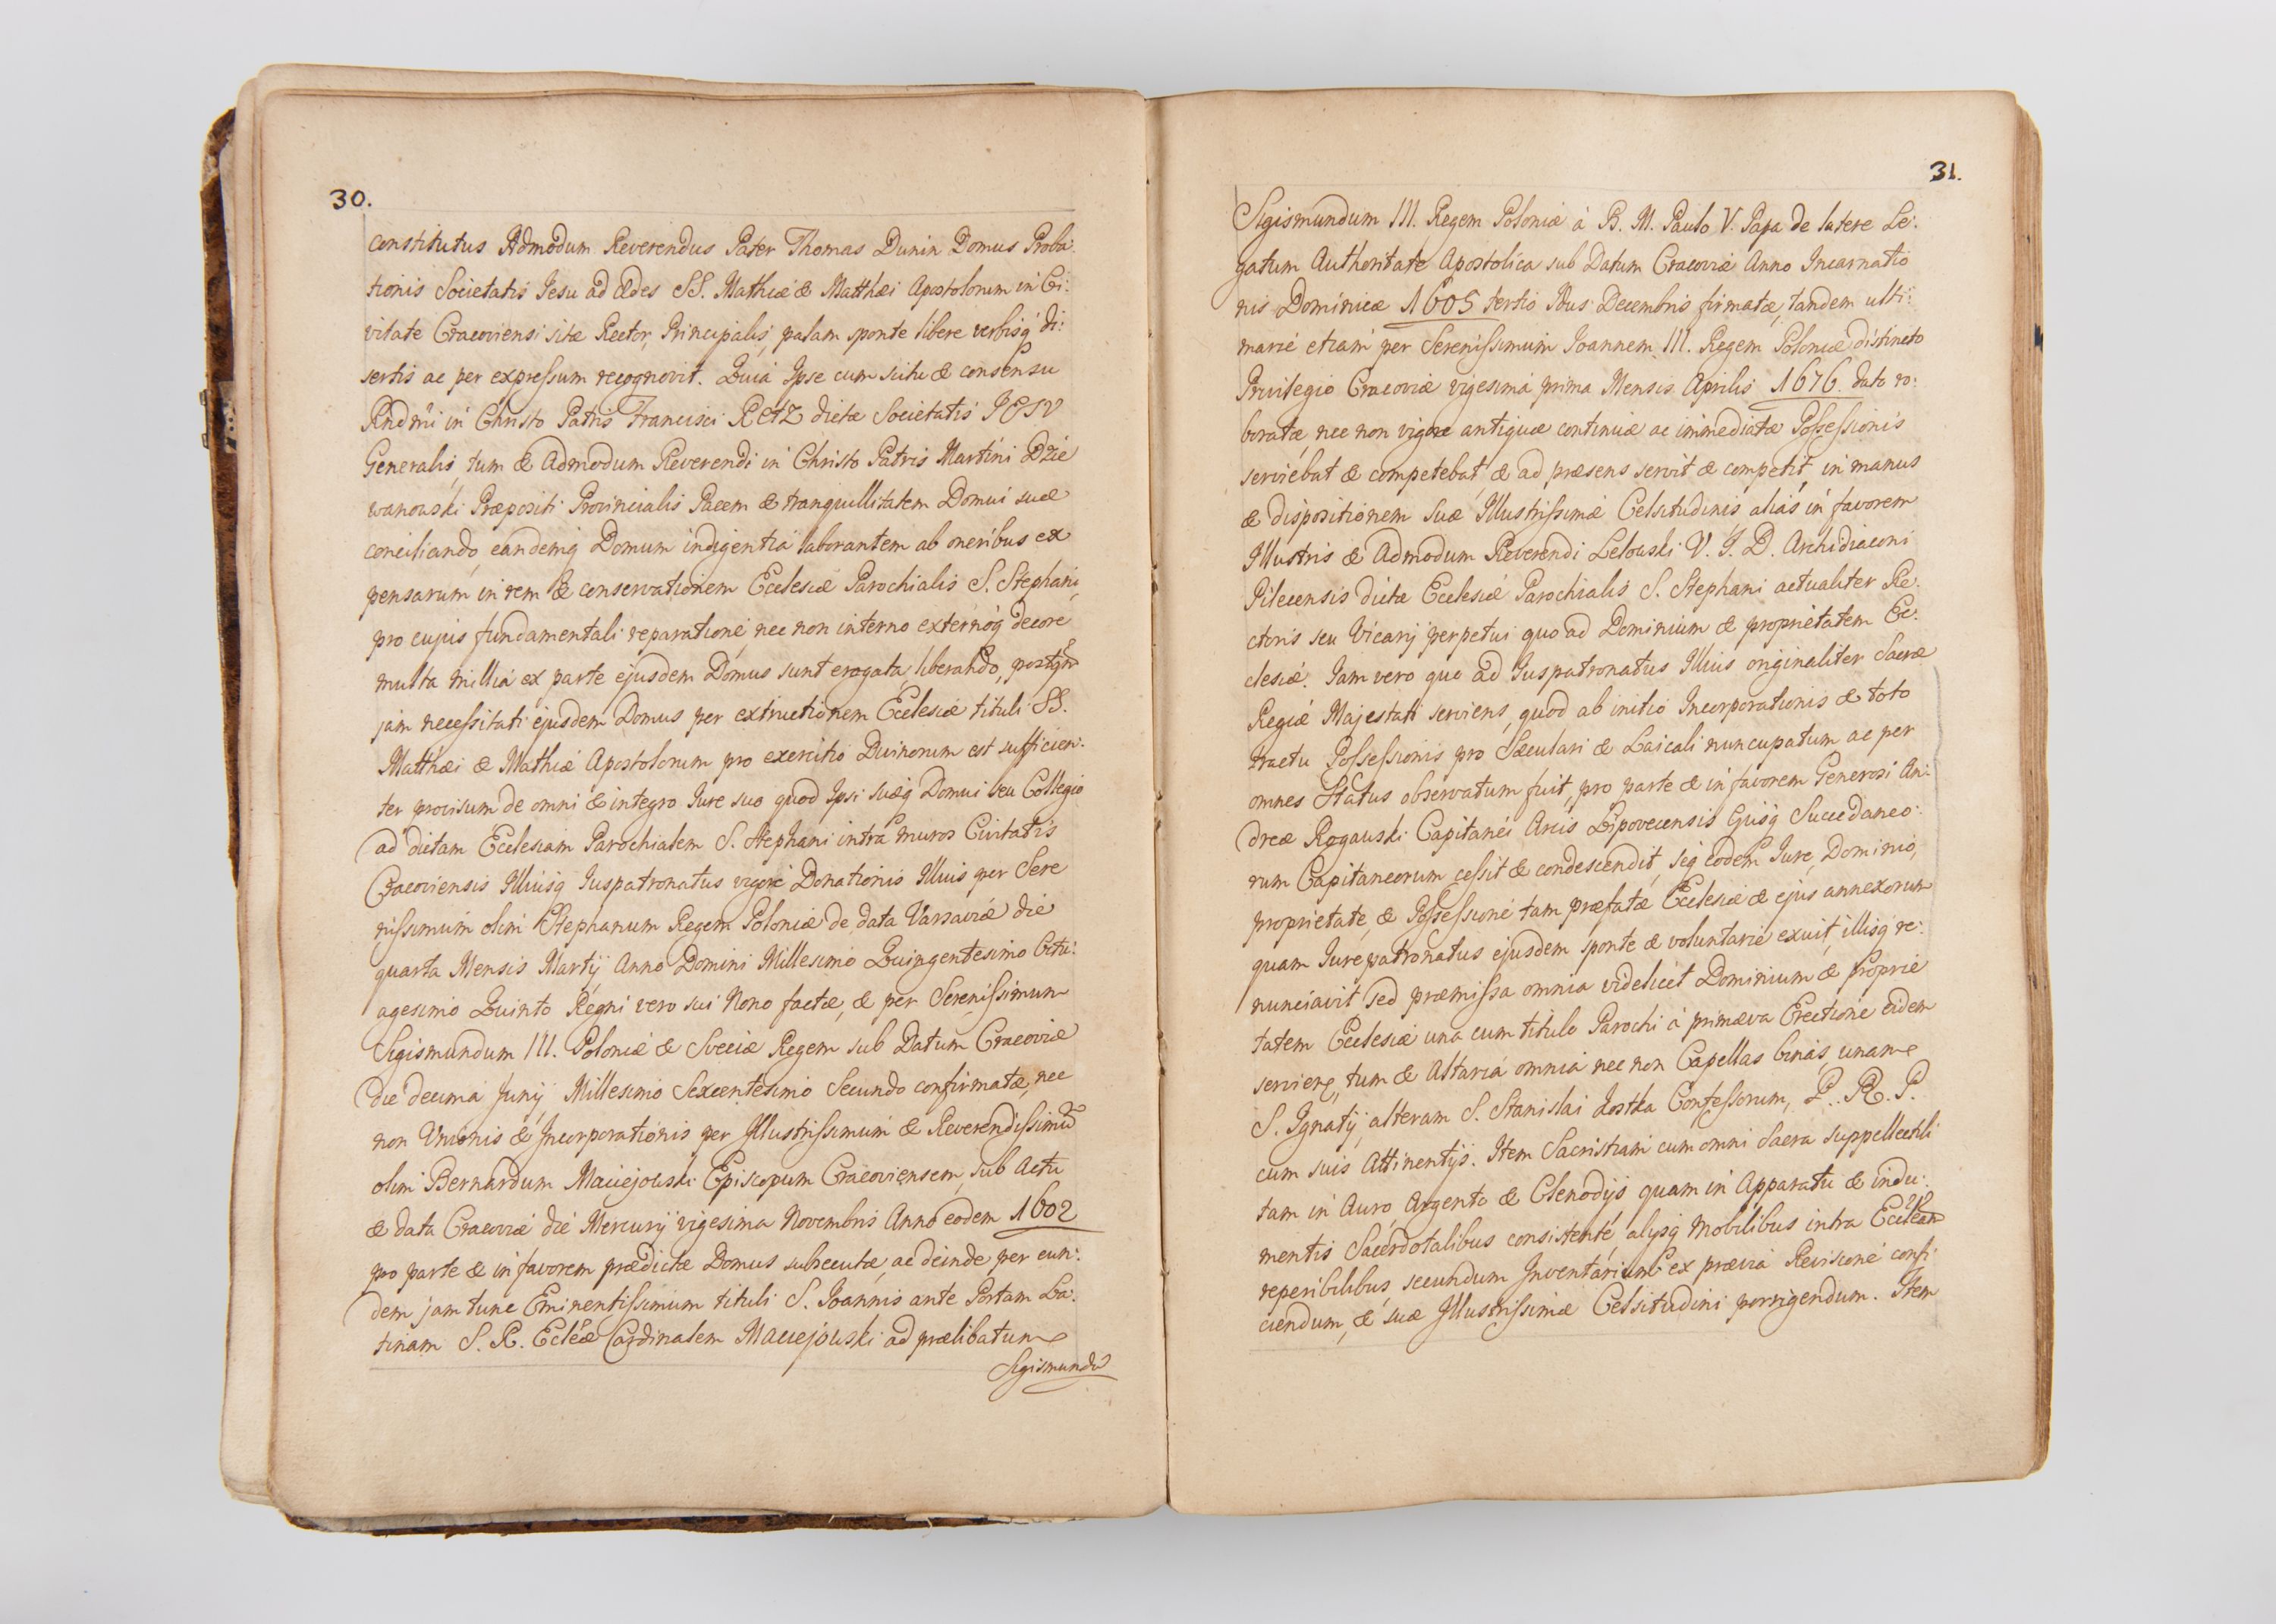 30.
constitutus Admodum Reverendus Pater Thomas Dunin Domus Proba:
tionis Societatis Iesu ad ædes SS. Mathiæ & Matthæi Apostolorum in Ci:
vitate Cracoviensi sitæ Rector, Principalis, palam sponte libere verbisq́ di:
sertis ac per expressum recognovit. Quia Ipse cum scitu & consensu
Rndmi in Christo Patris Francisci RETZ dictæ Societatis IESV
Generalis, tum & Admodum Reverendi in Christo Patris Martini Dzie
wanowski Præpositi Provincialis Pacem & tranquillitatem Domui suæ
conciliando, eandemq́ Domum indigentia laborantem ab oneribus ex
pensarum in rem & conservationem Ecclesiæ Parochialis S. Stephani,
pro cujus fundamentali reparatione, nec non interno externoq́ decore
multa millia ex parte ejusdem Domus sunt erogata, liberando, postqm̃
jam necessitati ejusdem Domus per extructionem Ecclesiæ tituli SS.
Matthæi & Mathiæ Apostolorum pro exercitio Divinorum est sufficien:
ter provisum de omni & integro Iure suo quod Ipsi suæq́ Domui seu Collegio
ad dictam Ecclesiam Parochialem S. Stephani intra muros Civitatis
Cracoviensis Illiusq́ Iuspatronatus vigore Donationis Illius per Sere
nissimum olim Stephanum Regem Poloniæ de data Varsaviæ die
quarta Mensis Martij Anno Domini Millesimo Quingentesimo Octu:
agesimo Quinto Regni vero sui Nono factæ, & per Serenissimum
Sigismundum III. Poloniæ & Sveciæ Regem sub Datum Cracoviæ
die decima Junij Millesimo Sexcentesimo Secundo confirmatæ, nec
non Unionis & Incorporationis per Illustrissimum & Reverendissimũ
olim Bernardum Maciejowski Episcopum Cracoviensem, sub Actu
& data Cracoviæ die Mercurij vigesima Novembris Anno eodem 1602
pro parte & in favorem prædictæ Domus subsecutæ, ac deinde per eun:
dem jam tunc Eminentissimum tituli S. Ioannis ante Portam La:
tinam S. R. Ecl̃æ Cardinalem Maciejowski ad prælibatum
Sigismundũ
31.
Sigismundum III. Regem Poloniæ à B. M. Paulo V. Papa de latere Le:
gatum Authoritate Apostolica sub Datum Cracoviæ Anno Incarnatio
nis Dominicæ 1605 tertio Idus Decembris firmatæ, tandem ulti:
marie etiam per Serenissimum Ioannem III. Regem Poloniæ distincto
Privilegio Cracoviæ vigesima prima Mensis Aprilis 1676. dato ro:
boratæ, nec non vigore antiquæ continuæ ac immediatæ Possessionis
serviebat & competebat & ad præsens servit & competit, in manus
& dispositionem suæ Illustrissimæ Celsitudinis alias in favorem
Illustris & Admodum Reverendi Lelowski V. I. D. Archidiaconi
Pilecensis dictæ Ecclesiæ Parochialis S. Stephani actualiter Re:
ctoris seu Vicarij perpetui quo ad Dominium & proprietatem Ec:
clesiæ. Iam vero quo ad Iuspatronatus Illius originaliter Sacræ
Regiæ Majestati serviens, quod ab initio Incorporationis & toto
tractu Possessionis pro Sæculari & Laicali nuncupatum ac per
omnes Status observatum fuit, pro parte & in favorem Generosi An:
dreæ Rogawski Capitanei Arcis Lipovecensis Ejusq́ Succedaneo:
rum Capitaneorum cessit & condescendit, seq́ eodem Iure, Dominio,
proprietate, & Possessione tam præfatæ Ecclesiæ & ejus annexorum
quam Iurepatronatus ejusdem sponte & voluntarie exuit, illisq́ re:
nunciavit sed præmissa omnia videlicet Dominium & Proprie
tatem Ecclesiæ una cum titulo Parochi à primæva Erectione eidem
serviens, tum & Altaria omnia nec non Capellas binas, unam
S. Ignatij, alteram S. Stanislai Kostka Confessorum, P. R. P.
cum suis Attinentijs. Item Sacristiam cum omni Sacra suppellectili
tam in Auro, Argento & Clenodijs quam in Apparatu & indu:
mentis Sacerdotalibus consistente, alijsq́ mobilibus intra Eccleam̃
reperibilibus, secundum Inventarium ex prævia Revisione confi:
ciendum, & suæ Illustrissimæ Celsitudini porrigendum. Item